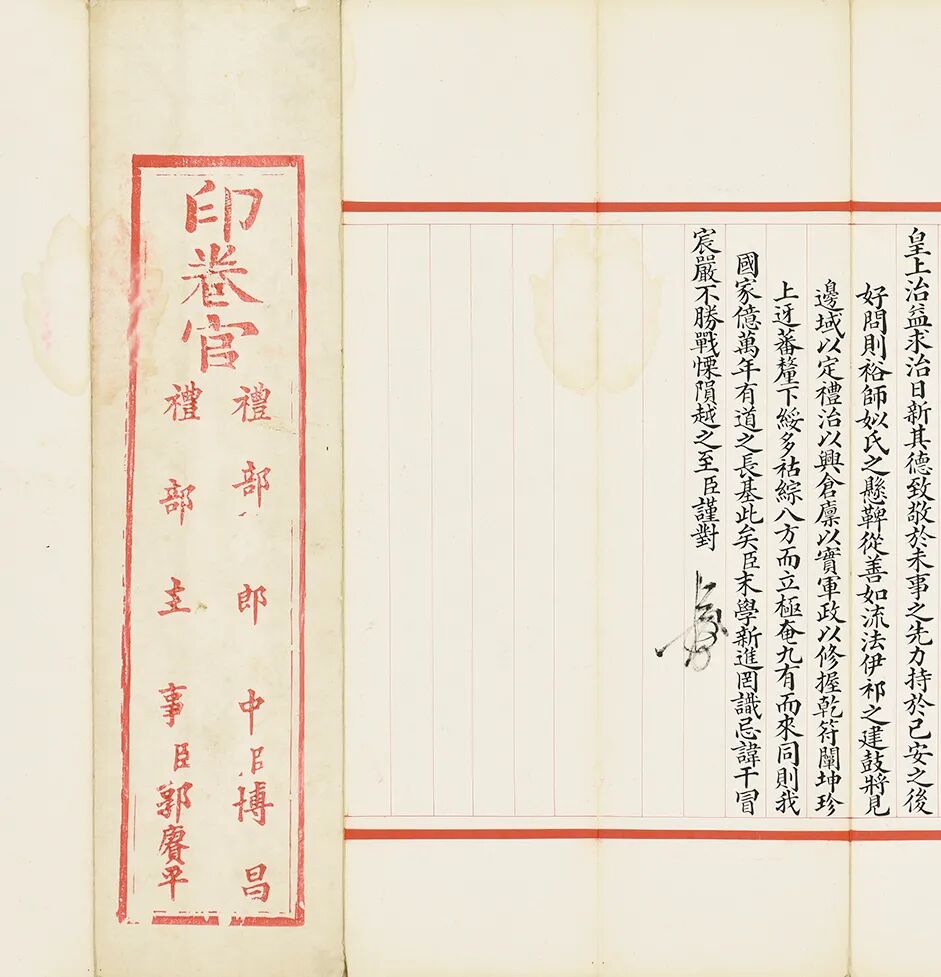 皇上治益求治日新其德致敬於未事之先力持於已安之後
好問則裕師姒氏之懸鞞從善如流法伊祁之建鼓將見
邊域以定禮治以興倉廩以實軍政以修握乾符闡坤珍
上迓蕃釐下綏多祜綜八方而立極奄九有而來同則我
國家億萬年有道之長基此矣臣末學新進罔識忌諱干冒
宸嚴不勝戰慄隕越之至臣謹對
印卷官
禮部郎中臣博昌
禮部主事臣郭賡平